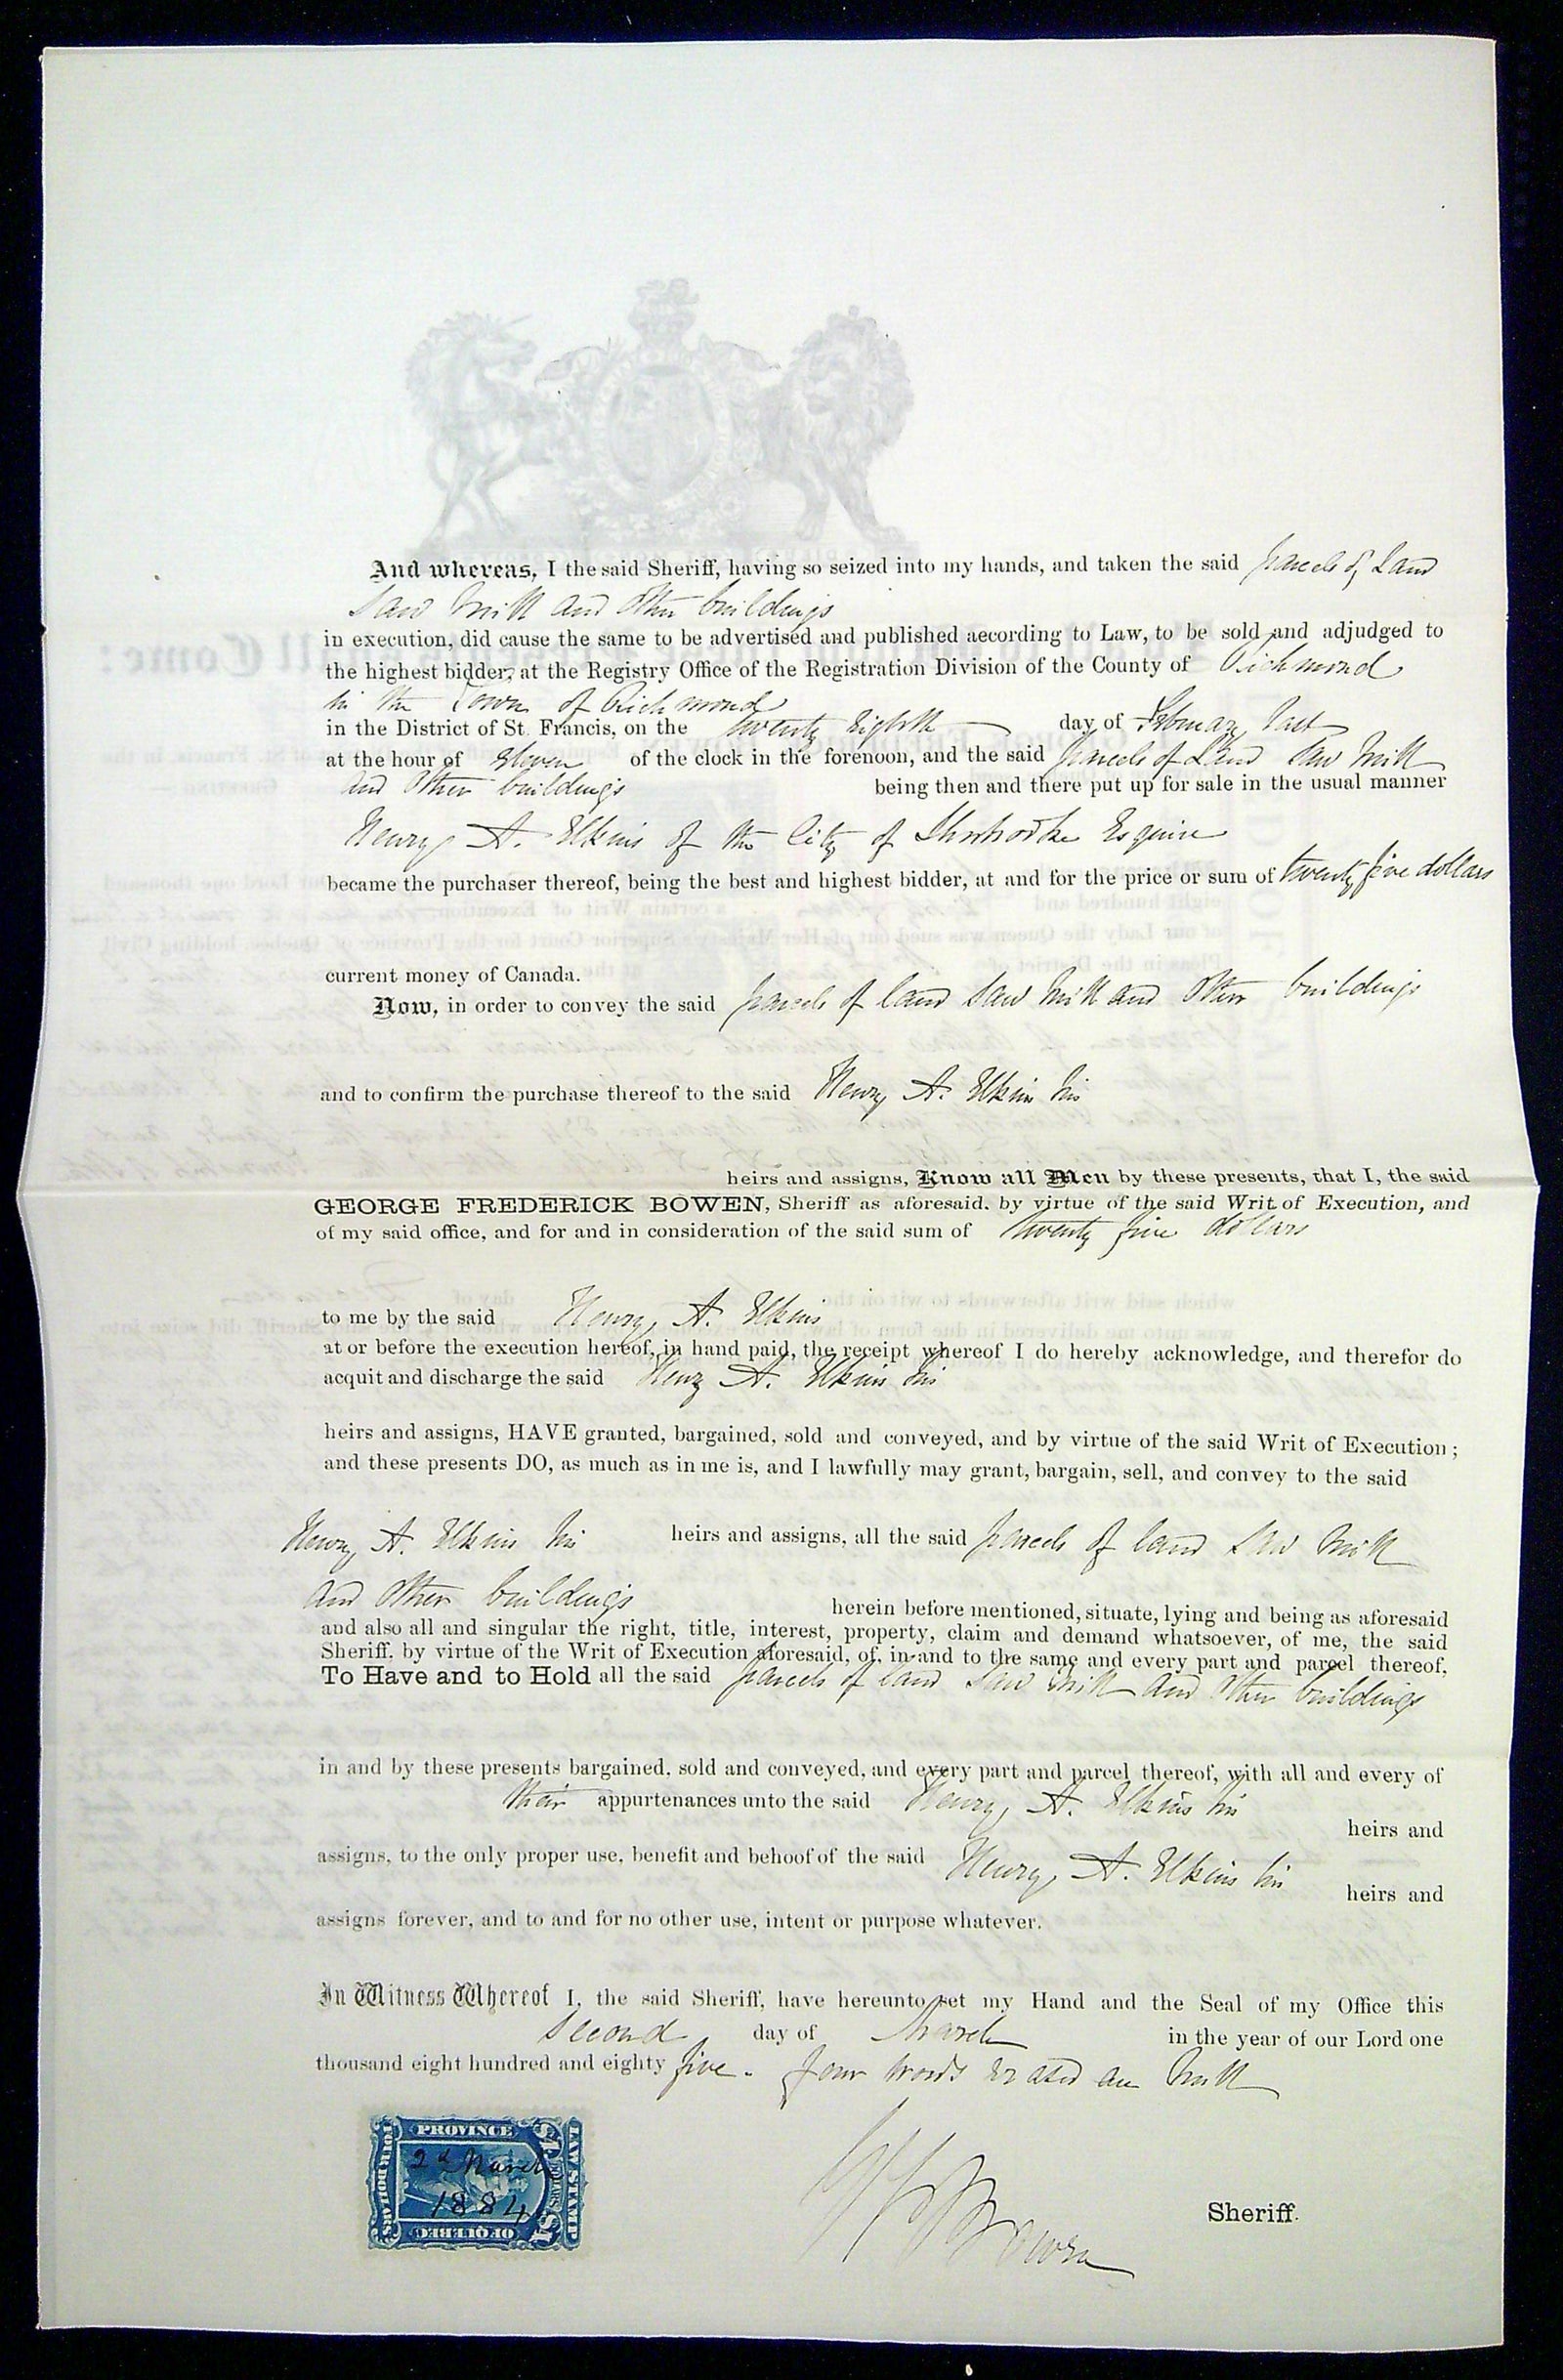 And whereas, I the said Sheriff, having so seized into my hands, and taken the said parcels of Land
Saw Mill and other buildings
in execution, did cause the same to be advertised and published according to Law, to be sold and adjudged to
the highest bidder, at the Registry Office of the Registration Division of the County of Richmond
in the Town of Richmond
in the District of St. Francis, on the twenty eighth day of February last
at the hour of eleven of the clock in the forenoon, and the said parcels of Land Saw Mill
and other buildings being then and there put up for sale in the usual manner
Henry A. Elkins of the City of Sherbrooke Esquire
became the purchaser thereof, being the best and highest bidder, at and for the price or sum of twenty five dollars
current money of Canada.
Now, in order to convey the said parcels of land Saw Mill and other buildings
and to confirm the purchase thereof to the said Henry A. Elkins his
heirs and assigns, Know all Men by these presents, that I, the said
GEORGE FREDERICK BOWEN, Sheriff as aforesaid. by virtue of the said Writ of Execution, and
of my said office, and for and in consideration of the said sum of twenty five dollars
to me by the said Henry A. Elkins
at or before the execution hereof, in hand paid, the receipt whereof I do hereby acknowledge, and therefor do
acquit and discharge the said Henry A. Elkins his
heirs and assigns, HAVE granted, bargained, sold and conveyed, and by virtue of the said Writ of Execution ;
and these presents DO, as much as in me is, and I lawfully may grant, bargain, sell, and convey to the said
Henry A. Elkins his heirs and assigns, all the said parcels of land Saw Mill
and other buildings herein before mentioned, situate, lying and being as aforesaid
and also all and singular the right, title, interest, property, claim and demand whatsoever, of me, the said
Sheriff, by virtue of the Writ of Execution aforesaid, of, in and to the same and every part and parcel thereof,
To Have and to Hold all the said parcels of land Saw Mill and other buildings
in and by these presents bargained, sold and conveyed, and every part and parcel thereof, with all and every of
their appurtenances unto the said Henry A. Elkins his
heirs and
assigns, to the only proper use, benefit and behoof of the said Henry A. Elkins his
heirs and
assigns forever, and to and for no other use, intent or purpose whatever.
In Witness Whereof I, the said Sheriff, have hereunto set my Hand and the Seal of my Office this
second day of March in the year of our Lord one
thousand eight hundred and eighty five. four words erased are null
PROVINCE
OF QUEBEC
LAW STAMP
FOUR DOLLARS
$4
2d March
1884
G F Bowen
Sheriff.